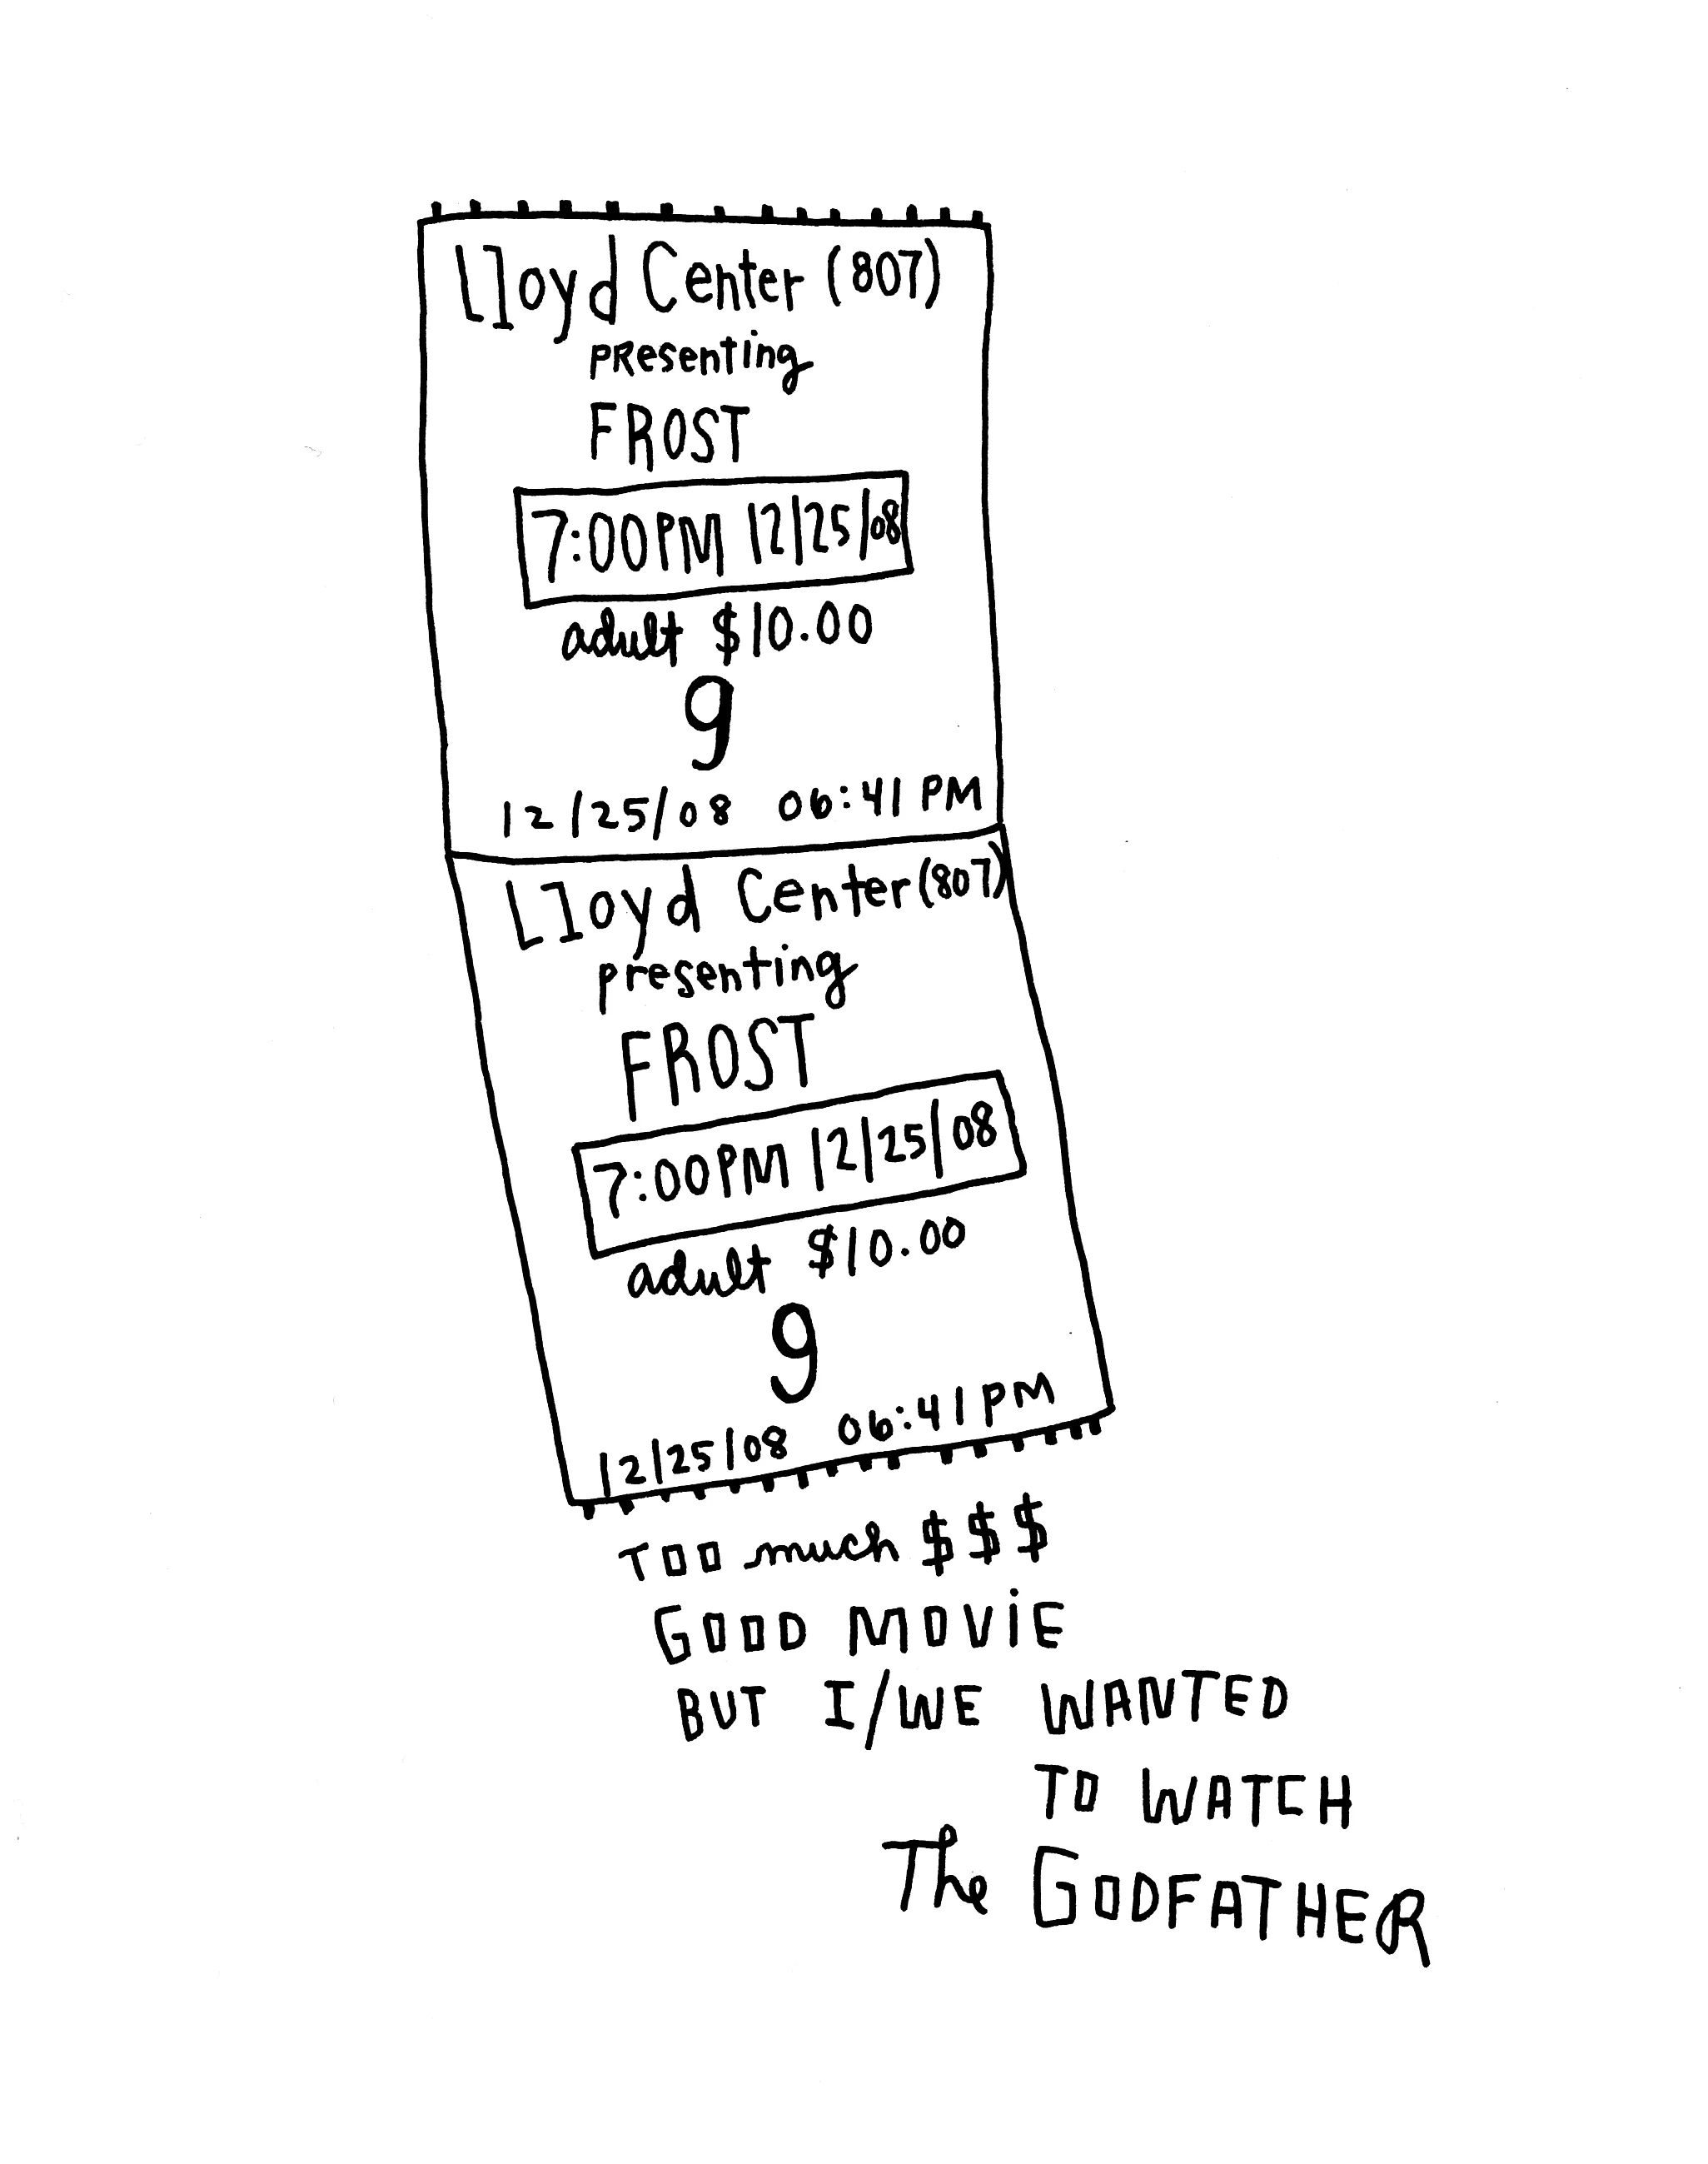 Lloyd Center (807)
presenting
FROST
7:00PM 12/25/08
adult $10.00
9
12/25/08 06:41 PM
Lloyd Center (807)
presenting
FROST
7:00PM 12/25/08
adult $10.00
9
12/25/08 06:41 PM
TOO much $$$
GOOD MOViE
BUT I/WE WANTED
TO WATCH
The GODFATHER